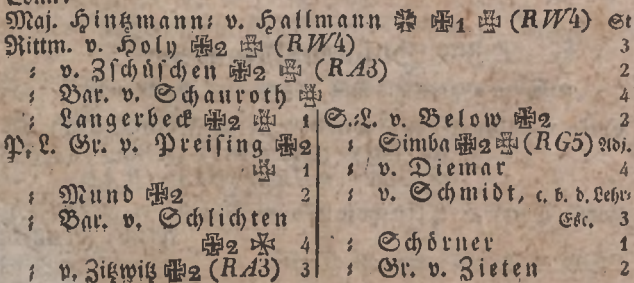 Maj. Hintzmann: v. Hallmann ✠ ✠1 ✠ (RW4) St
Rittm. v. Holy ✠2 ✠ (RW4) 3
: v. Zschüschen ✠2 ✠ (RA3) 2
: Bar. v. Schauroth ✠ 4
: Langerbeck ✠2 ✠ 1
P. L. Gr. v. Preising ✠2
✠ 1
: Mund ✠2 2
: Bar. v. Schlichten
✠2 ✠ 4
: v. Zitzwitz ✠2 (RA3) 3
S.:L. v. Below ✠2 2
: Simba ✠2 ✠ (RG5) Adj.
: v. Diemar 4
: v. Schmidt, c. b. d. Lehr:
Esc. 3
: Schörner 1
: Gr. v. Zieten 2